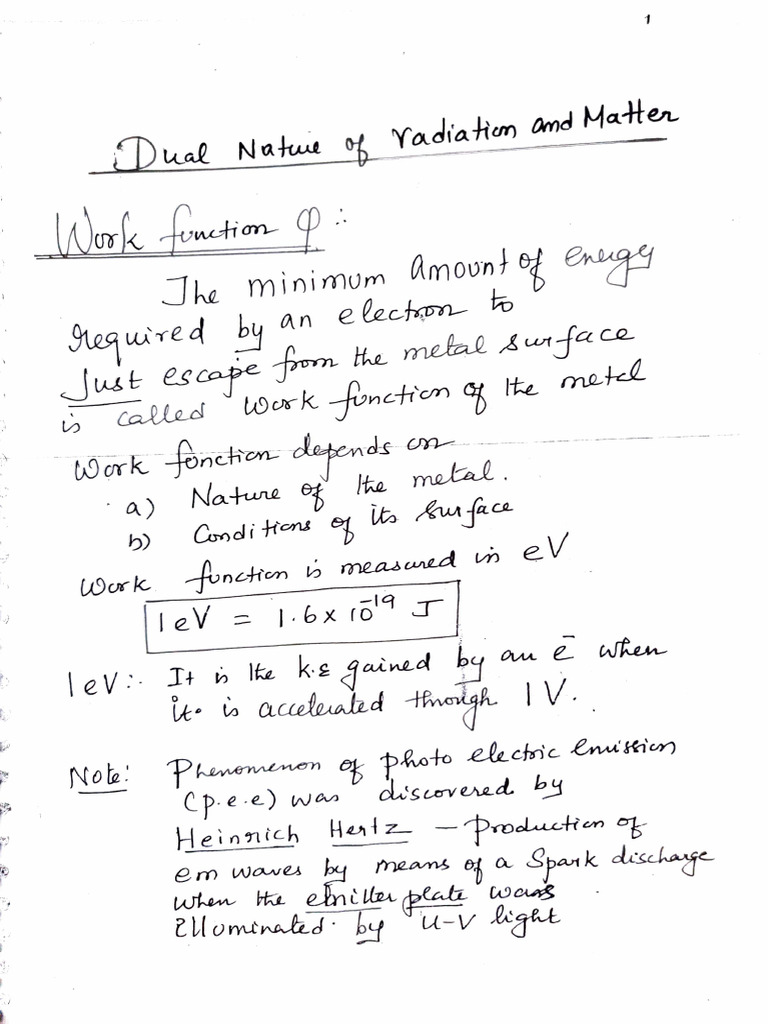 1
Dual Nature of radiation and Matter
Work function φ :
The minimum amount of energy
required by an electron to
Just escape from the metal surface
is called work function of the metal
Work function depends on
a) Nature of the metal.
b) Conditions of its surface
Work function is measured in eV
1 eV = 1.6 x 10⁻¹⁹ J
1 eV :. It is the k.E gained by an e⁻ when
it is accelerated through 1 V.
Note: Phenomenon of photo electric emission
(p.e.e) was discovered by
Heinrich Hertz – Production of
em waves by means of a spark discharge
when the emitter plate was
Illuminated by U-V light